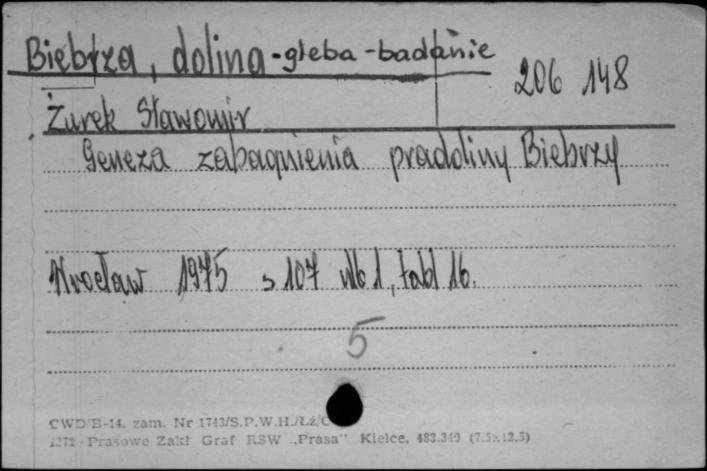 Biebrza, dolina - gleba - badanie
206 148
Żurek Sławomir
Geneza zabagnienia pradoliny Biebrzy
Wrocław 1975 s 107 nlb 1, tabl 16.
5
CWD/B-14. zam. Nr 1743/S.P.W.H./Łż/
1272 Prasowe Zakł Graf RSW „Prasa" Kielce, 483.349 (7.5x12,5)